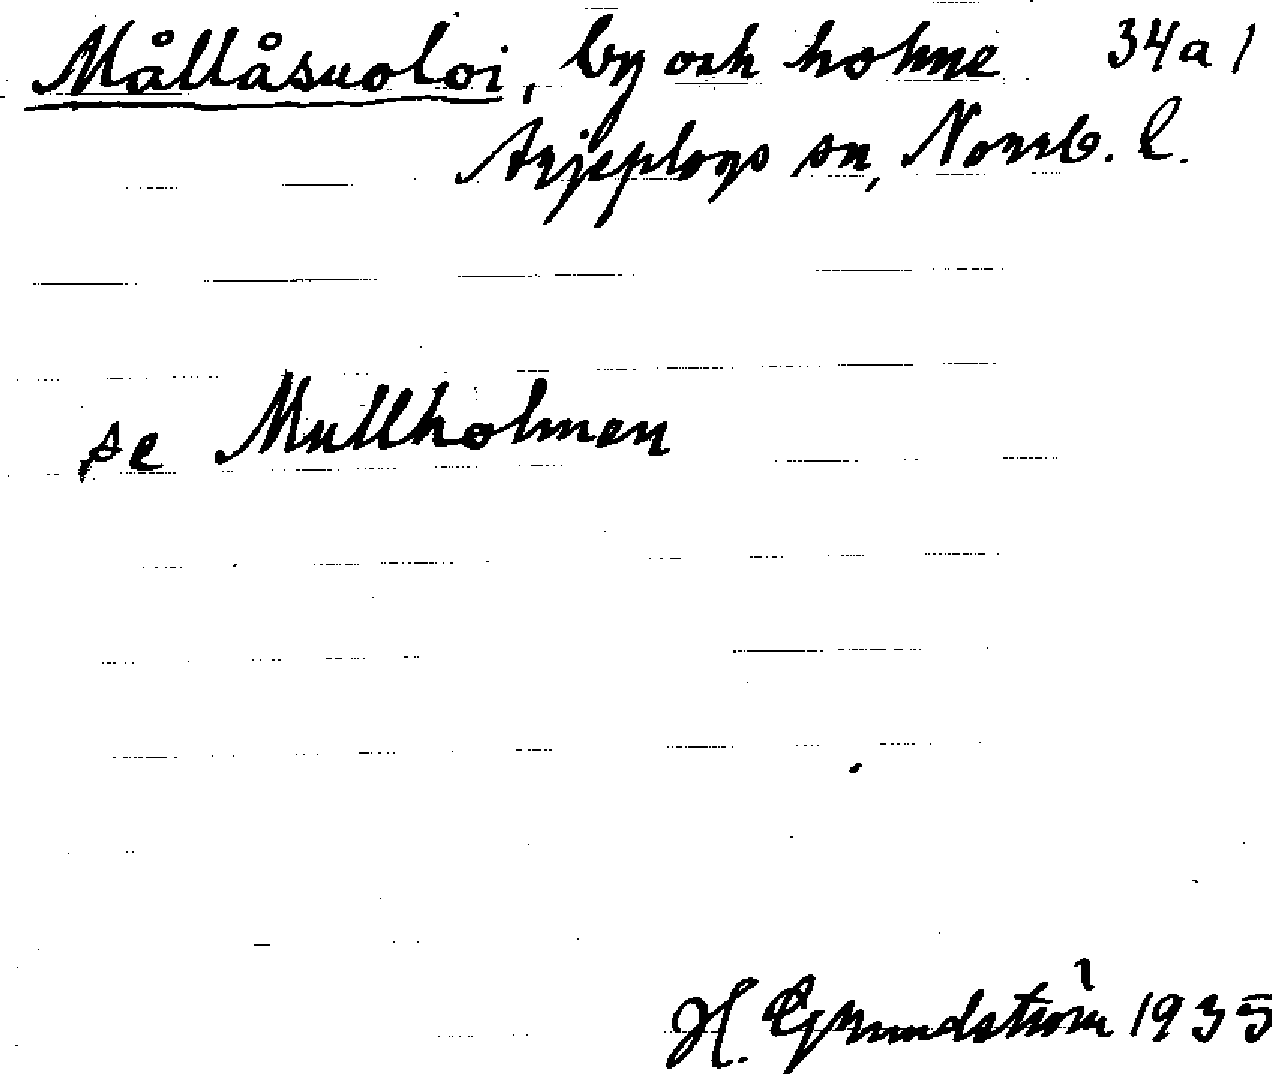 Mållåsuoloi, by och holme 34a1
Arjeplogs sn, Norrb. l.
se Mullholmen
H. Grundström 1935